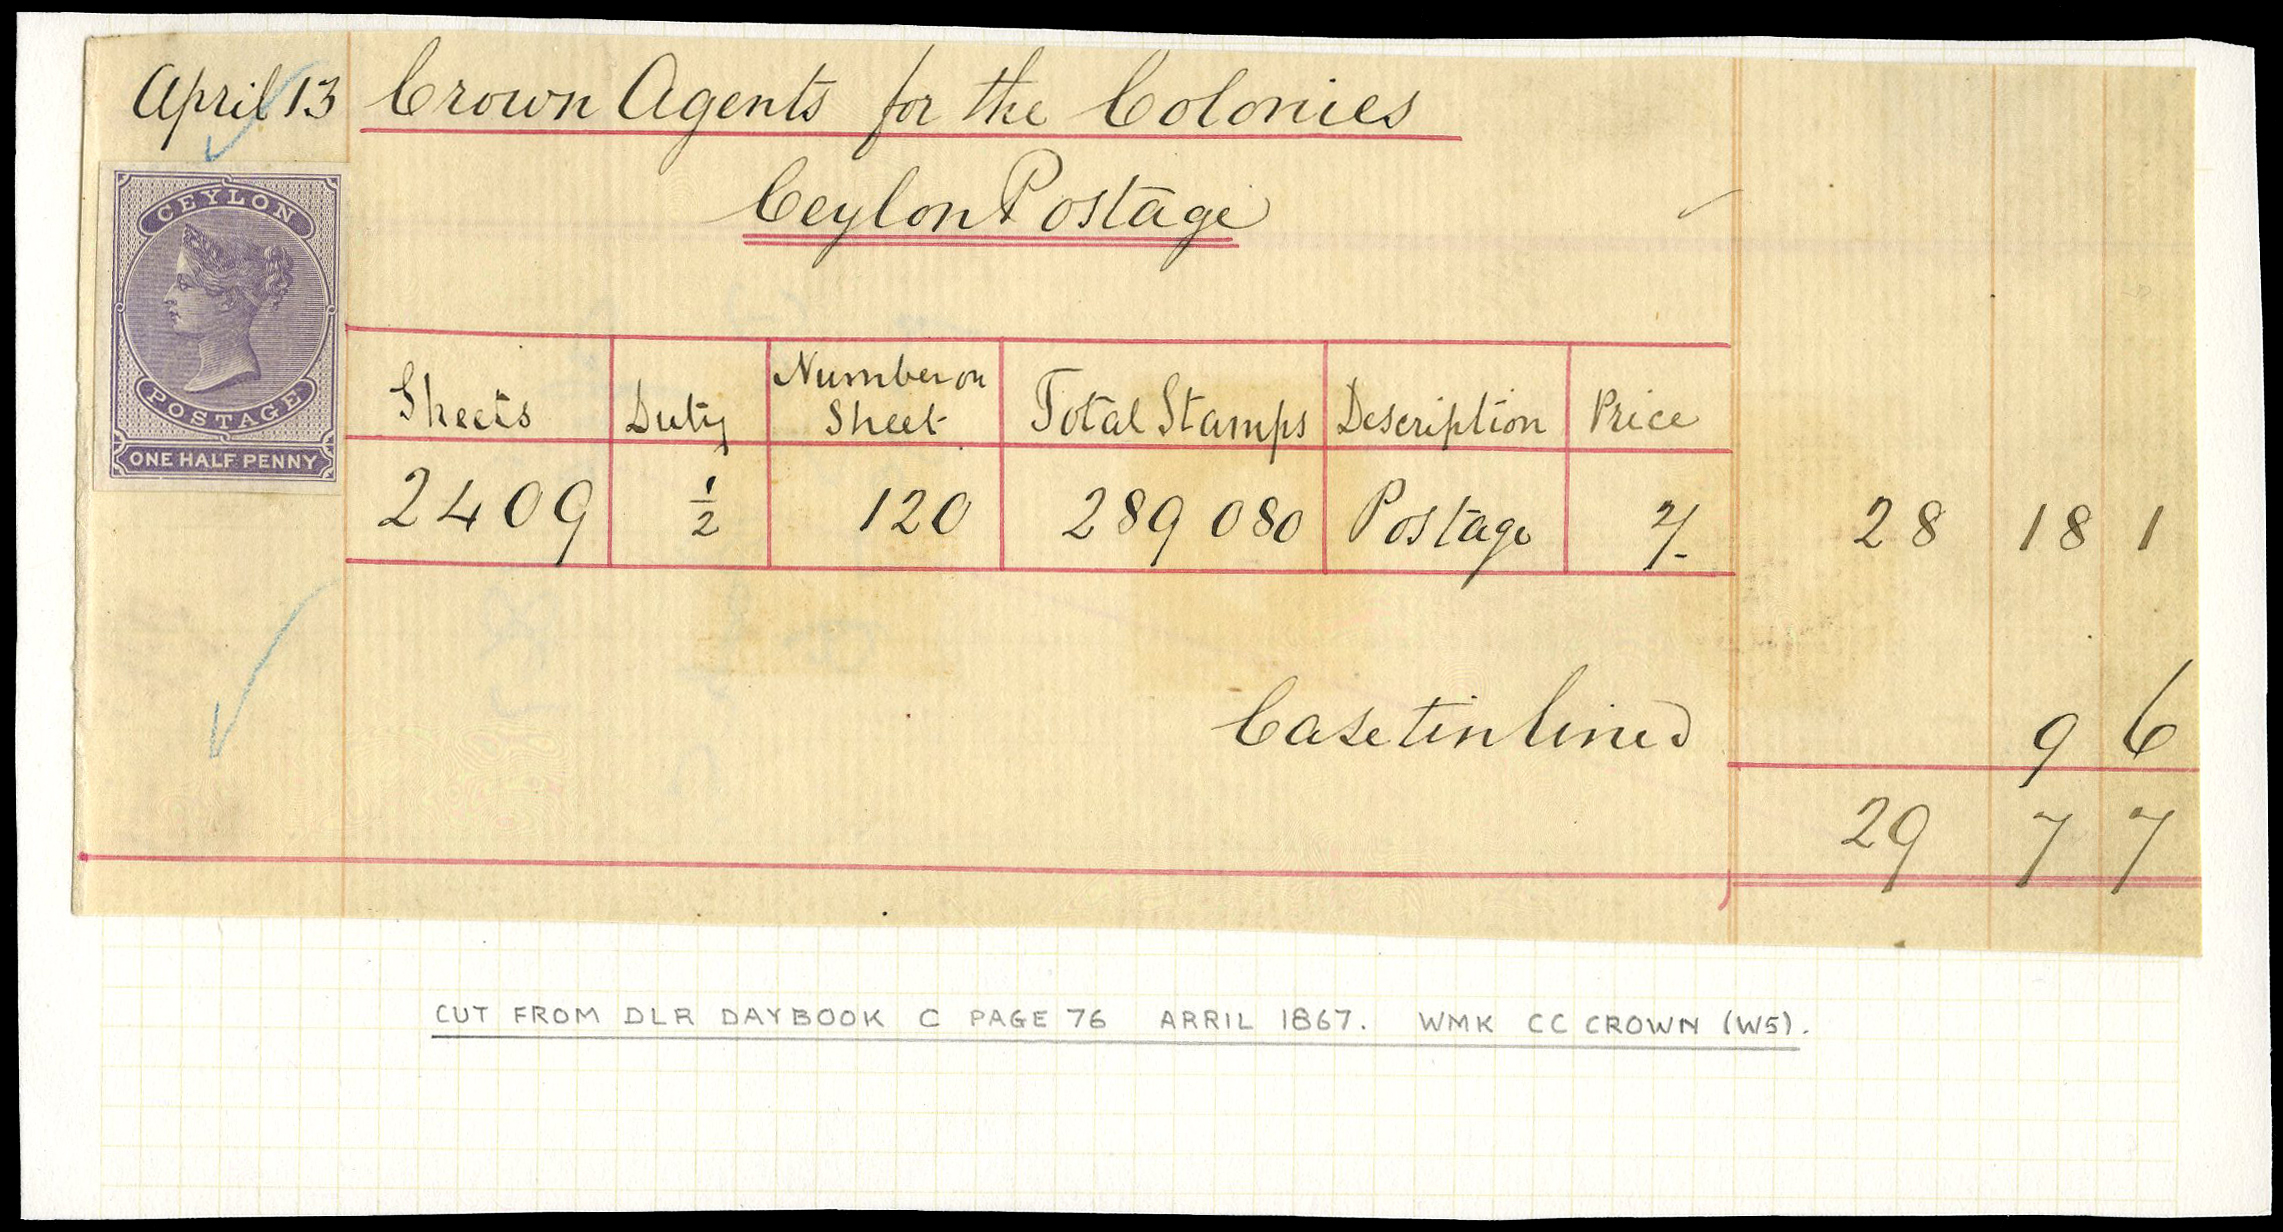 April 13 Crown Agents for the Colonies
Ceylon Postage
CEYLON
POSTAGE
ONE HALF PENNY
Sheets Duty Number on Sheet Total Stamps Description Price
2409 1/2 120 289 080 Postage 2/- 28 18 1
Case tin lined 9 6
29 7 7
CUT FROM DLR DAYBOOK C PAGE 76 ARRIL 1867. WMK CC CROWN (W5).